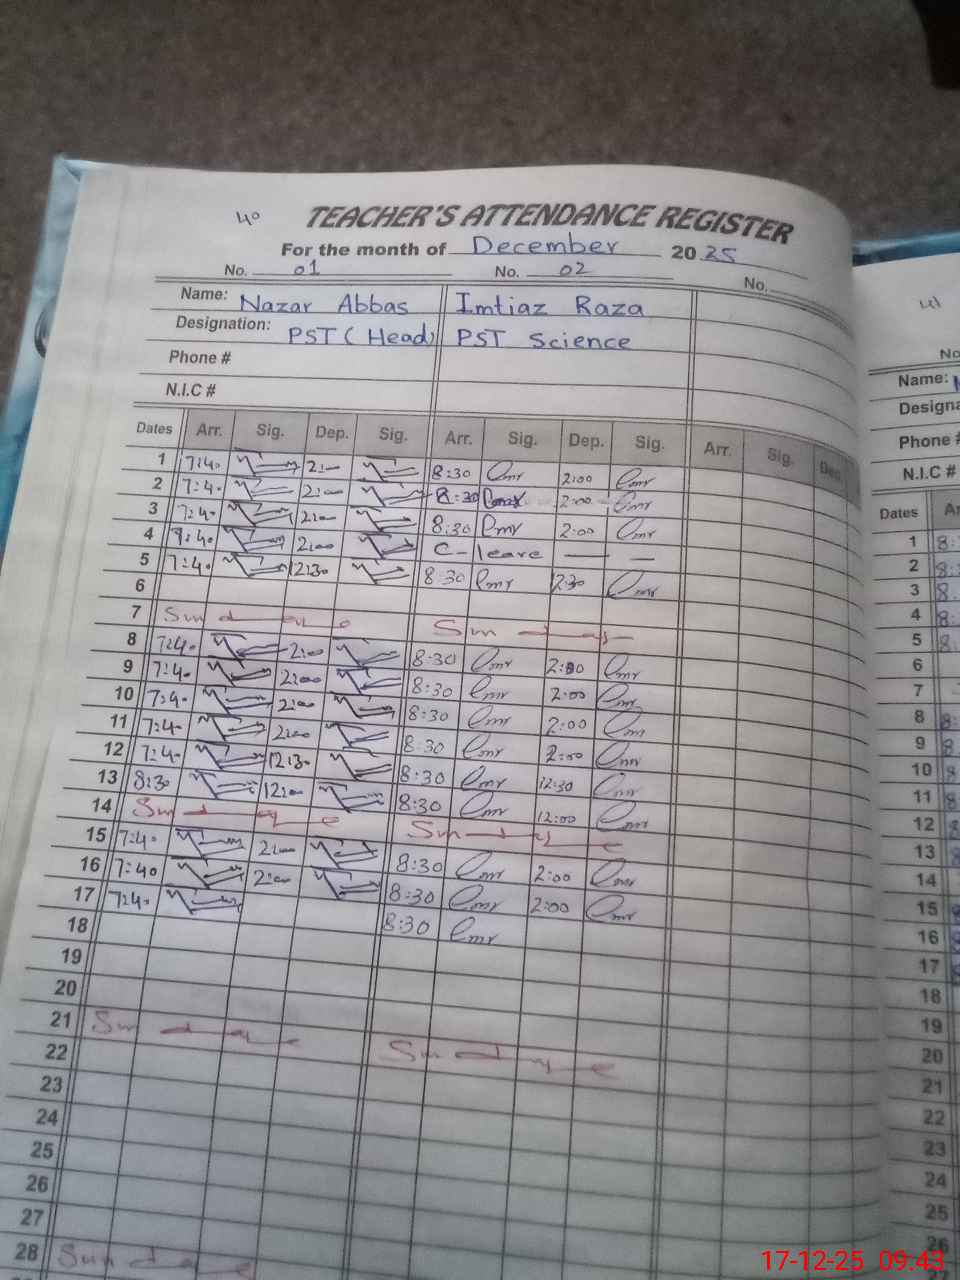 40
TEACHER'S ATTENDANCE REGISTER
For the month of December 2025
No. 01 No. 02 No.
Name: Nazar Abbas Imtiaz Raza
Designation: PST (Head) PST Science
Phone #
N.I.C #
Dates Arr. Sig. Dep. Sig. Arr. Sig. Dep. Sig. Arr. Sig. Dep.
1 7:40 2:00 8:30 2:00
2 7:40 2:00 8:30 2:00
3 7:40 2:00 8:30 2:00
4 7:40 2:00 C-leave — —
5 7:40 12:30 8:30 12:30
6
7 Sunday Sunday
8 7:40 2:00 8:30 2:00
9 7:40 2:00 8:30 2:00
10 7:40 2:00 8:30 2:00
11 7:40 2:00 8:30 2:00
12 7:40 12:30 8:30 12:30
13 8:30 12:00 8:30 12:00
14 Sunday Sunday
15 7:40 2:00 8:30 2:00
16 7:40 2:00 8:30 2:00
17 7:40 8:30
18
19
20
21 Sunday Sunday
22
23
24
25
26
27
28 Sunday
41
No
Name:
Designa
Phone #
N.I.C #
Dates Ar
1 8:
2 8:
3 8.
4 8:
5 8:
6
7
8 8:
9 8
10 8
11 8
12 8
13
14
15
16
17
18
19
20
21
22
23
24
25
26
17-12-25 09:43